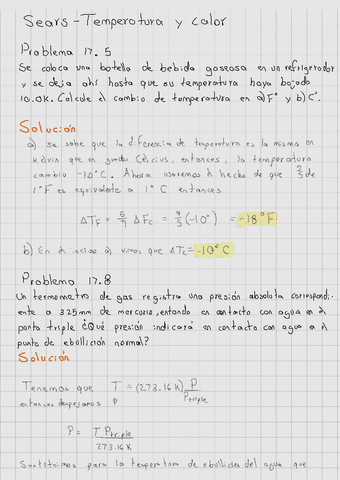 Sears - Temperatura y calor
Problema 17.5
Se coloca una botella de bebida gaseosa en un refrigerador
y se deja ahí hasta que su temperatura haya bajado
10.0K. Calcule el cambio de temperatura en a) F° y b) C°.
Solución
a) se sabe que la diferencia de temperatura es la misma en
kelvin que en grados Celcius, entonces, la temperatura
cambio -10°C. Ahora usaremos el hecho de que 9/5 de
1°F es equivalente a 1°C entonces
ΔT_F = 9/5 ΔF_C = 9/5 (-10°) = -18°F
b) En el inciso a) vimos que ΔT_C = -10°C
Problema 17.8
Un termometro de gas registra una presión absoluta correspondi-
ente a 325 mm de mercurio, estando en contacto con agua en el
punto triple ¿Qué presión indicará en contacto con agua en el
punto de ebullición normal?
Solución
Tenemos que T = (273.16 K) P/P_triple
entonces despejamos P
P = T P_triple / 273.16 K
Sustituimos para la temperatura de ebullicion del agua que